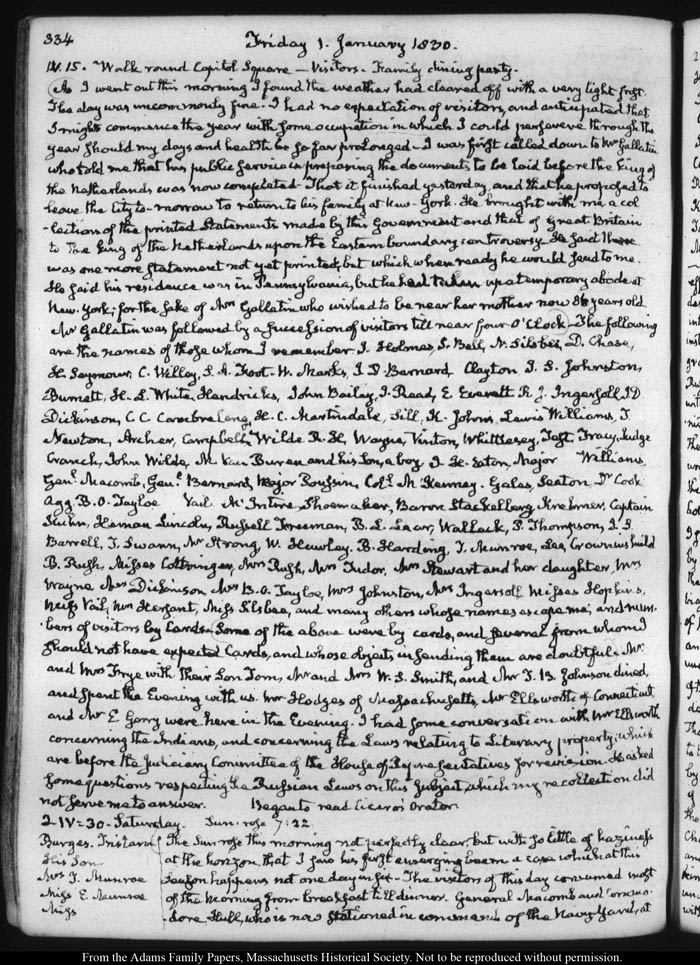 334
Friday 1. January 1830.
IV. 15. Walk round Capitol Square — Visitors. Family dining party.
As I went out this morning I found the weather had cleared off with a very light frost.
The day was uncommonly fine. I had no expectation of visitors, and anticipated that
I might commence the year with some occupation in which I could persevere through the
year should my days and health be so far prolonged. I was first called down to Mr Gallatin
who told me that his public service in preparing the documents to be laid before the King of
the Netherlands was now completed. That it finished yesterday, and that he proposed to
leave the City to-morrow to return to his family at New-York. He brought with me a col
-lection of the printed Statements made by this Government and that of Great Britain
to the King of the Netherlands upon the Eastern boundary controversy. He said there
was one more statement not yet printed, but which when ready he would send to me.
He said his residence was in Pennsylvania, but he had taken up a temporary abode at
New-York; for the sake of Mrs Gallatin who wished to be near her mother now 86 years old
Mr Gallatin was followed by a succession of visitors till near four O'Clock. The following
are the names of those whom I remember. J. Holmes, S. Bell, N. Silsbee, D. Chase,
H. Seymour, C. Willey, S. A. Foot. W. Marks, I D. Barnard Clayton J. S. Johnston,
Burnett, H. L. White Hendricks, John Bailey, J. Reed, E. Everett R. J. Ingersoll, J D
Dickinson, C. C. Cambreleng, H. C. Martindale, Sill, K. Johns, Lewis Williams, T.
Newton, Archer, Campbell, Wilde R. H, Wayne, Vinton, Whittlesey, Taft, Tracy, Judge
Cranch, John Wilde, M Van Buren and his Son, a boy J. H. Eaton, Major Williams
Genl. Macomb, Genl. Bernard, Major Poussin, Coll. M Kenney. Gales, Seaton Dr Cook
Agg B. O. Tayloe Vail McIntire, Shoemaker, Baron Stackelberg Krehmer, Captain
Heman Lincoln, Russell Freeman, B. L. Lear, Wallack, P. Thompson, J. G.
Barrell, T. Swann, Mr Strong, W. Hawley, B. Harding, J. Munroe, Lee, Crowninshield
B. Rush, Misses Cottringer, Mrs Rush, Mrs Tudor, Mrs Stewart and her daughter, Mrs
Wayne Mrs Dickinson Mrs B. O. Tayloe, Mrs Johnston, Mrs Ingersoll Misses Hopkins,
Miss Vail, Mrs Kersant, Miss Silsbee, and many others whose names escape me, and num
-bers of visitors by Cards. Some of the above were by cards, and several from whom I
should not have expected Cards, and whose objects in sending them are doubtful. Mr
and Mrs Frye with their Son Tom, Mr and Mrs W. S. Smith, and Mr T. B. Johnson dined,
and spent the Evening with us. Mr Hodges of Massachusetts, Mr Ellsworth of Connecticut,
and Mr E Gerry were here in the Evening. I had some conversation with Mr Ellsworth
concerning the Indians, and concerning the Laws relating to Literary property; which
are before the Judiciary Committee of the House of Representatives for revision. He asked
some questions respecting the Russian Laws on this subject, which my recollection did
not serve me to answer. Began to read Cicero's Orator.
2. IV=30. Saturday. Sun rose 7:22.
Burges. Tristam
His Son
Mrs J. Munroe
Miss E. Munroe
Miss
The Sun rose this morning not perfectly clear, but with so little of haziness
at the horizon that I saw his first emerging beam a case which at this
season happens not one day in six. The visitors of this day consumed most
of the morning from breakfast to dinner. General Macomb and Commo-
-dore Hull, who is now stationed in command of the Navy Yard, at
From the Adams Family Papers, Massachusetts Historical Society. Not to be reproduced without permission.